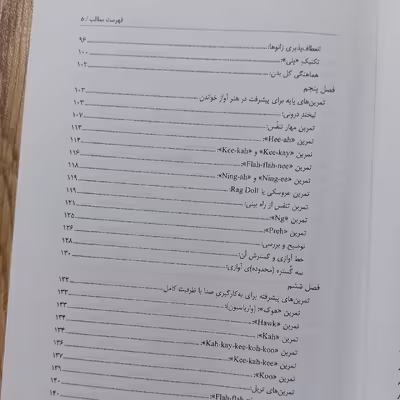 فهرست مطالب / ۵
انعطاف‌پذیری زانوها: ۹۶
تکنیکِ «پلی»: ۱۰۰
هماهنگی کل بدن: ۱۰۲
فصل پنجم
تمرین‌های پایه برای پیشرفت در هنر آواز خواندن ۱۰۳
لبخند درونی: ۱۰۳
تمرین مهار تنفّس: ۱۰۷
تمرین «Hee-ah»: ۱۱۳
تمرین «Kee-kay» و «Kee-kah»: ۱۱۴
تمرین «Flah-flah-nee»: ۱۱۶
تمرین «Ning-ee» و «Ning-ah»: ۱۱۸
تمرین عروسکی یا Rag Doll: ۱۱۹
تمرین تنفس از راه بینی: ۱۱۹
تمرین «Ng»: ۱۲۱
تمرین «Preh»: ۱۲۵
توضیح و بررسی: ۱۲۶
خط آوازی و گسترش آن: ۱۲۸
سه گستره (محدوده)ی آوازی: ۱۳۰
فصل ششم
تمرین‌های پیشرفته برای به‌کارگیری صدا با ظرفیت کامل ۱۳۲
تمرین «هوک»: (واریاسیون): ۱۳۳
تمرین «Hawk»: ۱۳۳
تمرین «Kah»: ۱۳۴
تمرین «Kah-kay-kee-koh-koo»: ۱۳۴
تمرین «Kee-kah-kee»: ۱۳۶
تمرین «Koo»: ۱۳۷
تمرین‌های تریل: ۱۳۹
۱۴۰
۱۴۰